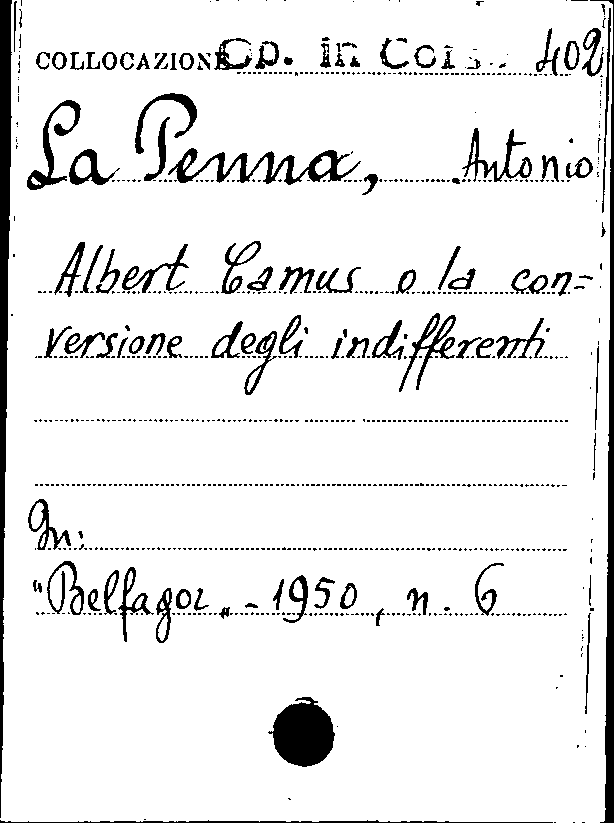 COLLOCAZIONE Op. in Cors. 402
La Penna, Antonio
Albert Camus o la con=
versione degli indifferenti
In:
"Belfagor„ - 1950, n. 6